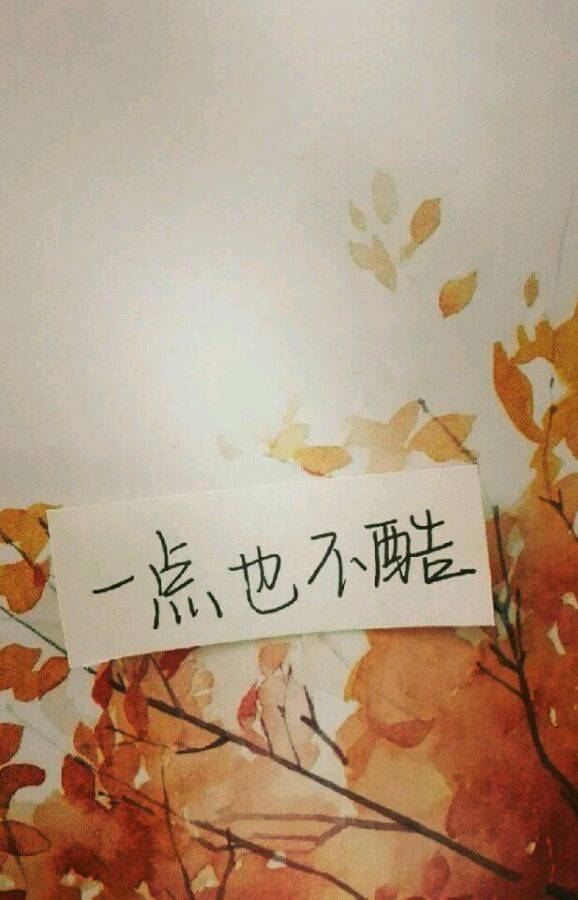 一点也不酷